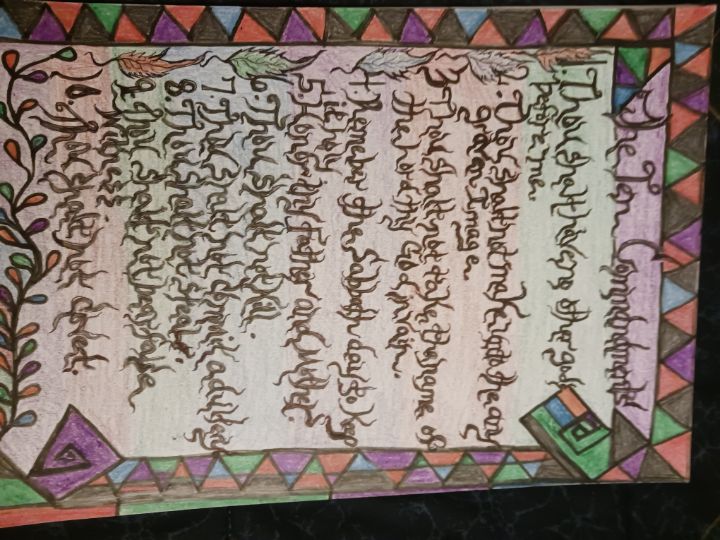 The Ten Commandments
1. Thou shalt have no other gods
before me.
2. Thou shalt not make unto thee any
graven Image.
3. Thou shalt not take the name of
the Lord thy God in vain.
4. Remember the Sabbath day to keep
it holy
5. Honor thy Father and Mother.
6. Thou shalt not kill.
7. Thou shalt not commit adultery
8. Thou shalt not steal.
9. Thou shalt not bear false
witness
10. Thou shalt not covet.